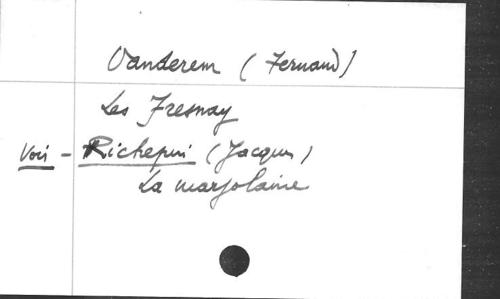 Vanderem (Fernand)
Les Fresnay
Voir - Richepin (Jacques)
La marjolaine